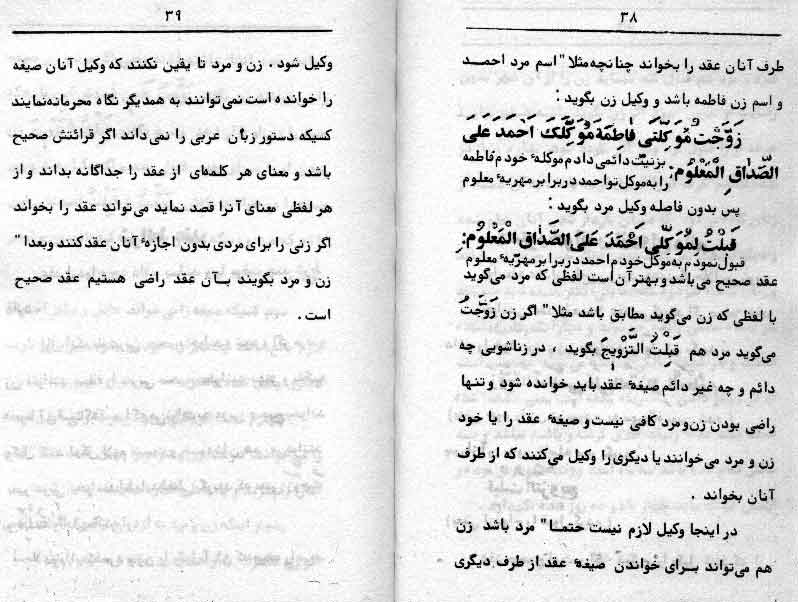 ۳۸
طرف آنان عقد را بخواند چنانچه مثلا" اسم مرد احمد
و اسم زن فاطمه باشد و وکیل زن بگوید :
زَوَّجْتُ مُوَکِّلَتَی فَاطِمَةَ مُوَکِّلَکَ اَحْمَدَ عَلَی
الصِّدٰاقِ الْمَعْلُوم: بزنیت دائمی دادم موکلهٔ خودم فاطمه
را به موکل تو احمد در برابر مهریهٔ معلوم
پس بدون فاصله وکیل مرد بگوید :
قَبِلْتُ لِمُوَکِّلی اَحْمَدَ عَلَی الصِّدٰاقِ الْمَعْلُوم:
قبول نمودم به موکل خودم احمد در برابر مهریهٔ معلوم
عقد صحیح می‌باشد و بهتر آن است لفظی که مرد می‌گوید
با لفظی که زن می‌گوید مطابق باشد مثلا" اگر زن زَوَّجْتُ
می‌گوید مرد هم قَبِلْتُ التَّزْوِیجَ بگوید ، در زناشویی چه
دائم و چه غیر دائم صیغهٔ عقد باید خوانده شود و تنها
راضی بودن زن و مرد کافی نیست و صیغهٔ عقد را یا خود
زن و مرد می‌خوانند یا دیگری را وکیل می‌کنند که از طرف
آنان بخواند .
در اینجا وکیل لازم نیست حتما" مرد باشد زن
هم می‌تواند برای خواندن صیغهٔ عقد از طرف دیگری
۳۹
وکیل شود . زن و مرد تا یقین نکنند که وکیل آنان صیغه
را خوانده است نمی‌توانند به همدیگر نگاه محرمانه نمایند
کسیکه دستور زبان عربی را نمی‌داند اگر قرائتش صحیح
باشد و معنای هر کلمه‌ای از عقد را جداگانه بداند و از
هر لفظی معنای آنرا قصد نماید می‌تواند عقد را بخواند
اگر زنی را برای مردی بدون اجازهٔ آنان عقد کنند و بعدا"
زن و مرد بگویند به آن عقد راضی هستیم عقد صحیح
است .